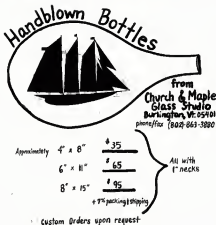 Handblown Bottles
from
Church & Maple
Glass Studio
Burlington, Vt. 05401
phone/fax (802)-863-3880
Approximately 4" x 8" $35
6" x 11" $65
8" x 15" $95
All with
1" necks
+ 9% packing & shipping
Custom Orders upon request